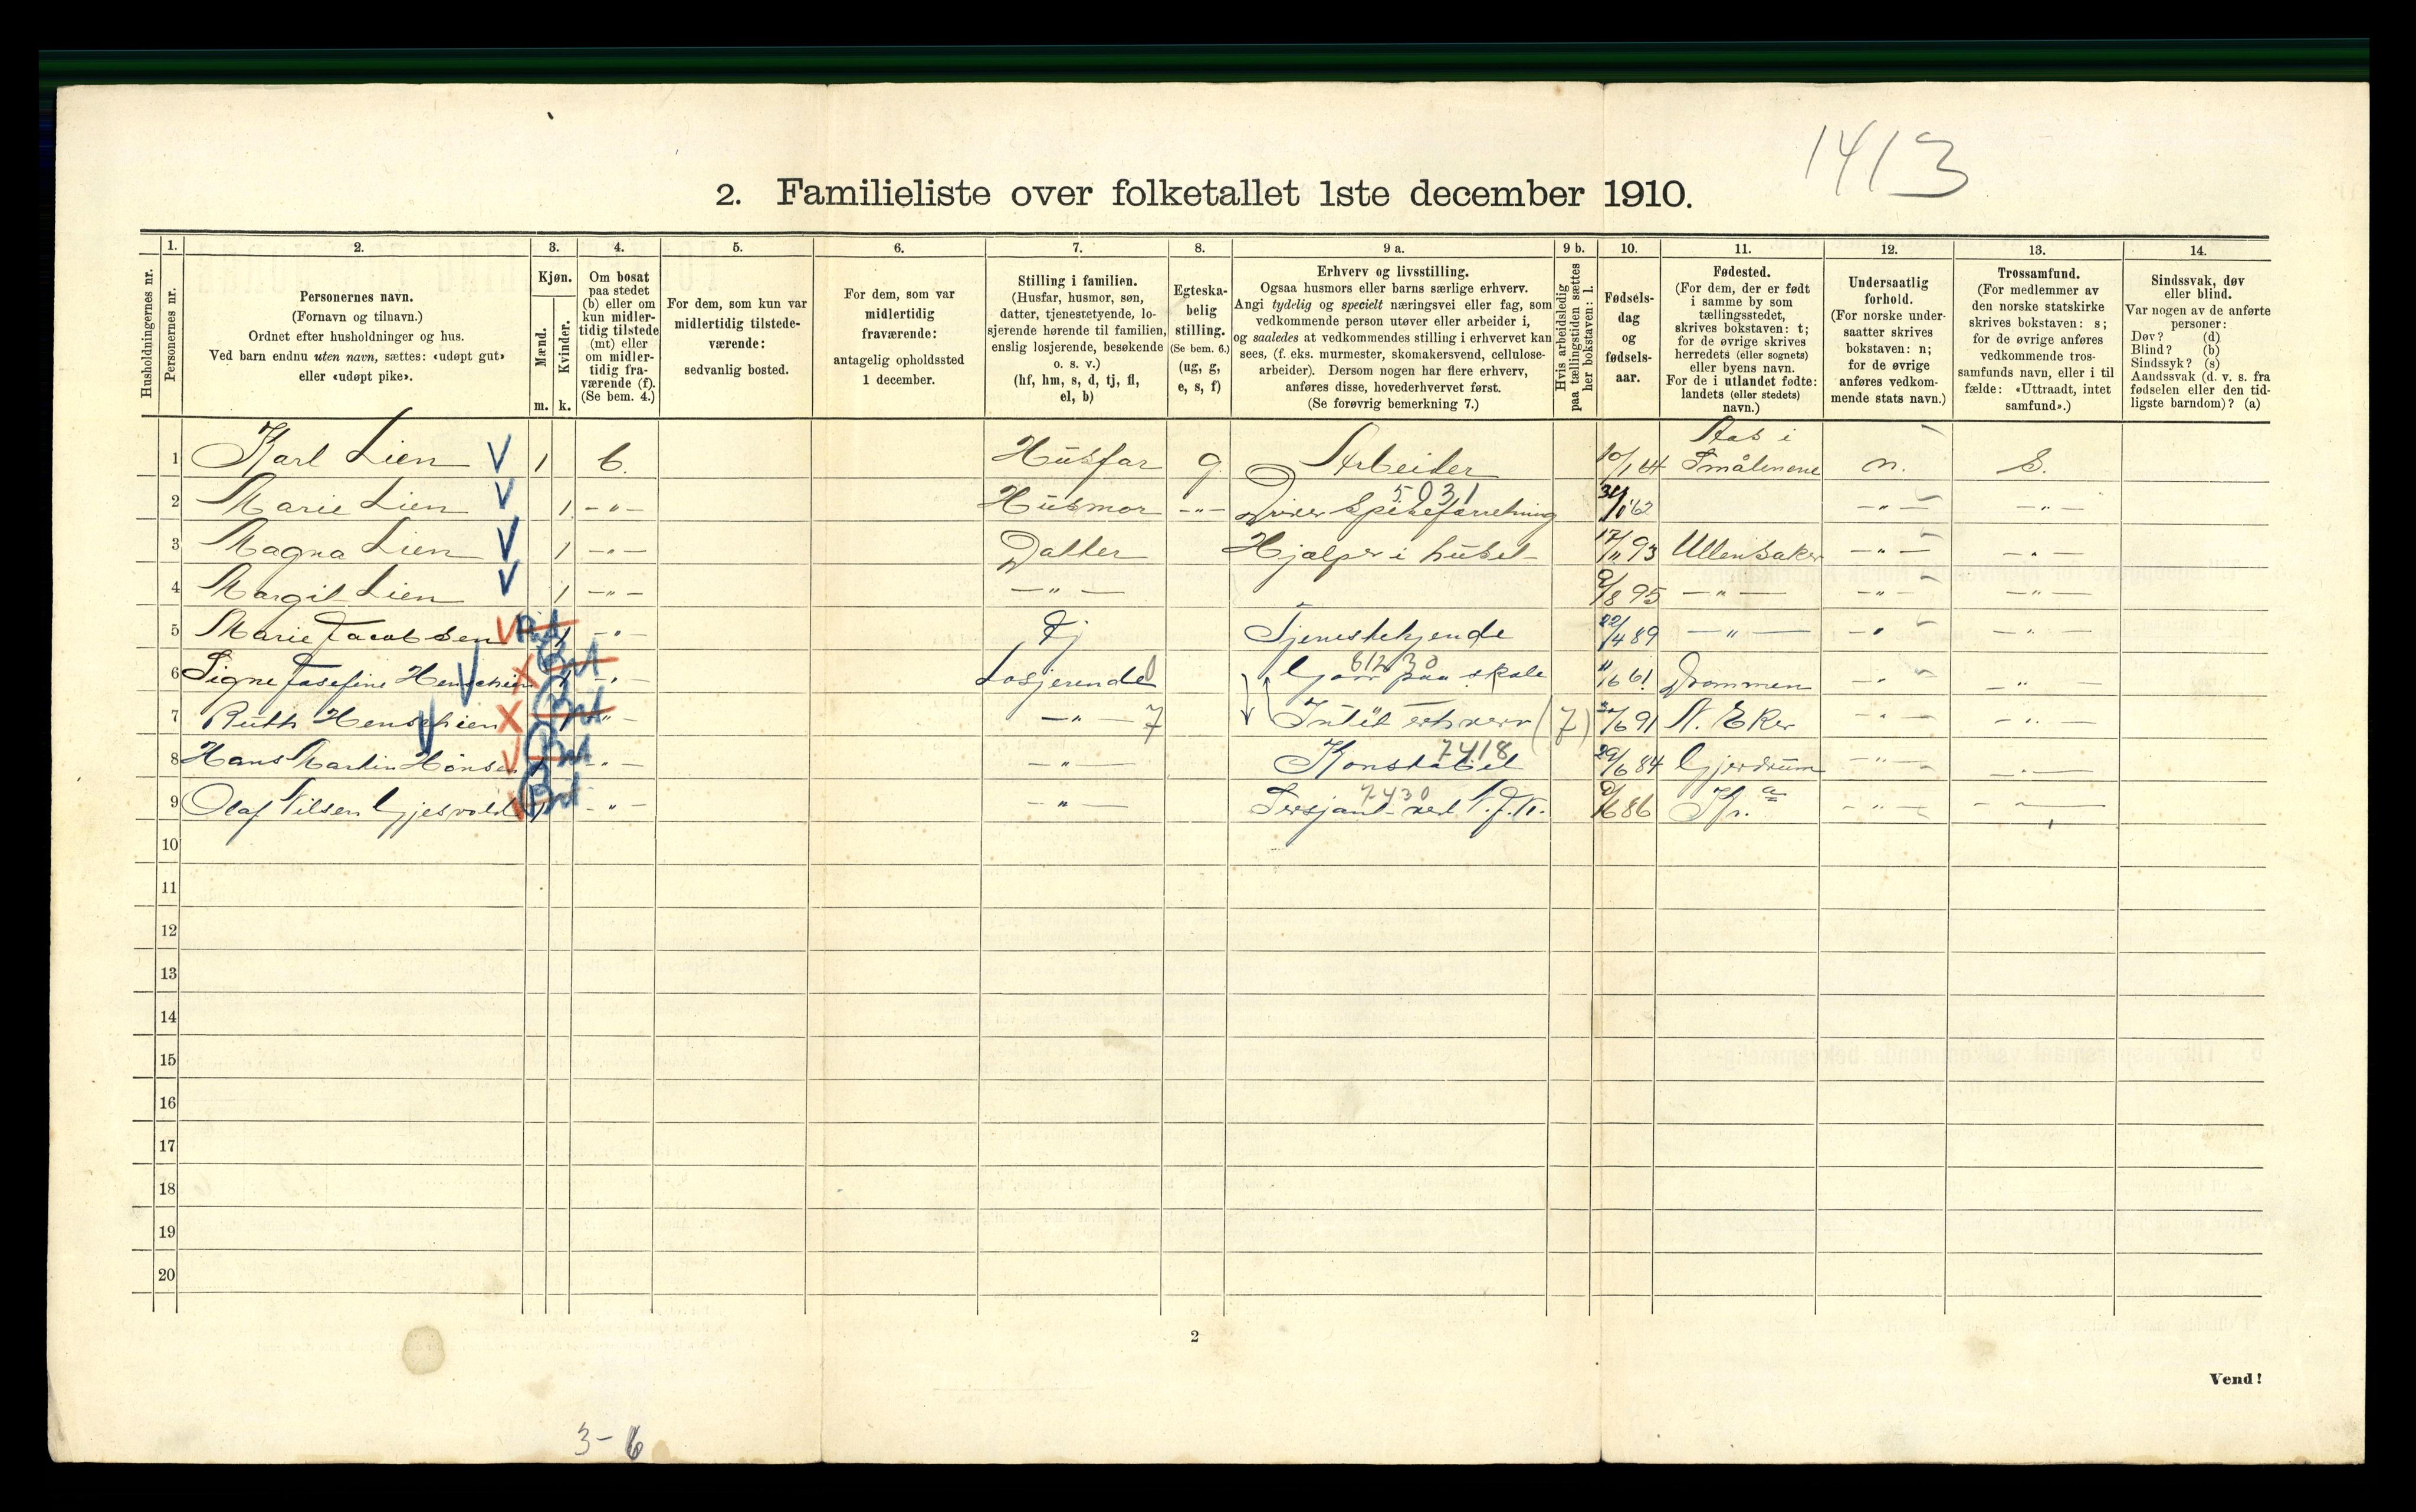 1413
2. Familieliste over folketallet 1ste december 1910.
Husholdningernes nr.
1. Personernes nr.
2. Personernes navn.
(Fornavn og tilnavn.)
Ordnet efter husholdninger og hus.
Ved barn endnu uten navn, sættes: «udøpt gut»
eller «udøpt pike».
3. Kjøn.
Mænd. Kvinder.
m. k.
4. Om bosat
paa stedet
(b) eller om
kun midler-
tidig tilstede
(mt) eller
om midler-
tidig fra-
værende (f).
(Se bem. 4.)
5. For dem, som kun var
midlertidig tilstede-
værende:
sedvanlig bosted.
6. For dem, som var
midlertidig
fraværende:
antagelig opholdssted
1 december.
7. Stilling i familien.
(Husfar, husmor, søn,
datter, tjenestetyende, lo-
sjerende hørende til familien,
enslig losjerende, besøkende
o. s. v.)
(hf, hm, s, d, tj, fl,
el, b)
8. Egteska-
belig
stilling.
(Se bem. 6.)
(ug, g,
e, s, f)
9 a. Erhverv og livsstilling.
Ogsaa husmors eller barns særlige erhverv.
Angi tydelig og specielt næringsvei eller fag, som
vedkommende person utøver eller arbeider i,
og saaledes at vedkommendes stilling i erhvervet kan
sees, (f. eks. murmester, skomakersvend, cellulose-
arbeider). Dersom nogen har flere erhverv,
anføres disse, hovederhvervet først.
(Se forøvrig bemerkning 7.)
9 b. Hvis arbeidsledig
paa tællingstiden sættes
her bokstaven: l.
10. Fødsels-
dag
og
fødsels-
aar.
11. Fødested.
(For dem, der er født
i samme by som
tællingsstedet,
skrives bokstaven: t;
for de øvrige skrives
herredets (eller sognets)
eller byens navn.
For de i utlandet fødte:
landets (eller stedets)
navn.)
12. Undersaatlig
forhold.
(For norske under-
saatter skrives
bokstaven: n;
for de øvrige
anføres vedkom-
mende stats navn.)
13. Trossamfund.
(For medlemmer av
den norske statskirke
skrives bokstaven: s;
for de øvrige anføres
vedkommende tros-
samfunds navn, eller i til
fælde: «Uttraadt, intet
samfund».)
14. Sindssvak, døv
eller blind.
Var nogen av de anførte
personer:
Døv? (d)
Blind? (b)
Sindssyk? (s)
Aandssvak (d. v. s. fra
fødselen eller den tid-
ligste barndom)? (a)
1 Karl Lien V 1 b. Husfar g. Arbeider 10/1 64 Aas i Smålenene n. S.
5031
2 Marie Lien V 1 -"- Husmor -"- Driver Spiseforretning 31/1 62 -"- -"-
3 Magna Lien V 1 -"- Datter Hjælper i huset 17/11 93 Ullensaker -"- -"-
4 Margit Lien V 1 -"- -"- 9/8 95 -"- -"- -"-
5 Marie Jacobsen V 1 -"- Tj Tjenestetyende 22/4 89 -"- -"- -"-
6 Signe Josefine Henschien X 1 -"- Losjerende 61230 Gaar paa skole 61 Drammen -"- -"-
7 Ruth Henschien X 1 -"- -"- 7 Intet erhverv (7) 91 N. Eker -"- -"-
8 Hans Martin Hansen V 1 -"- -"- 7418 Konstabel 29/6 84 Gjerdrum -"- -"-
9 Olaf Nilsen Gjesvold 1 -"- -"- 7430 Sersjant ved 86 Kr.a -"- -"-
10
11
12
13
14
15
16
17
18
19
20
2
Vend!
3-6